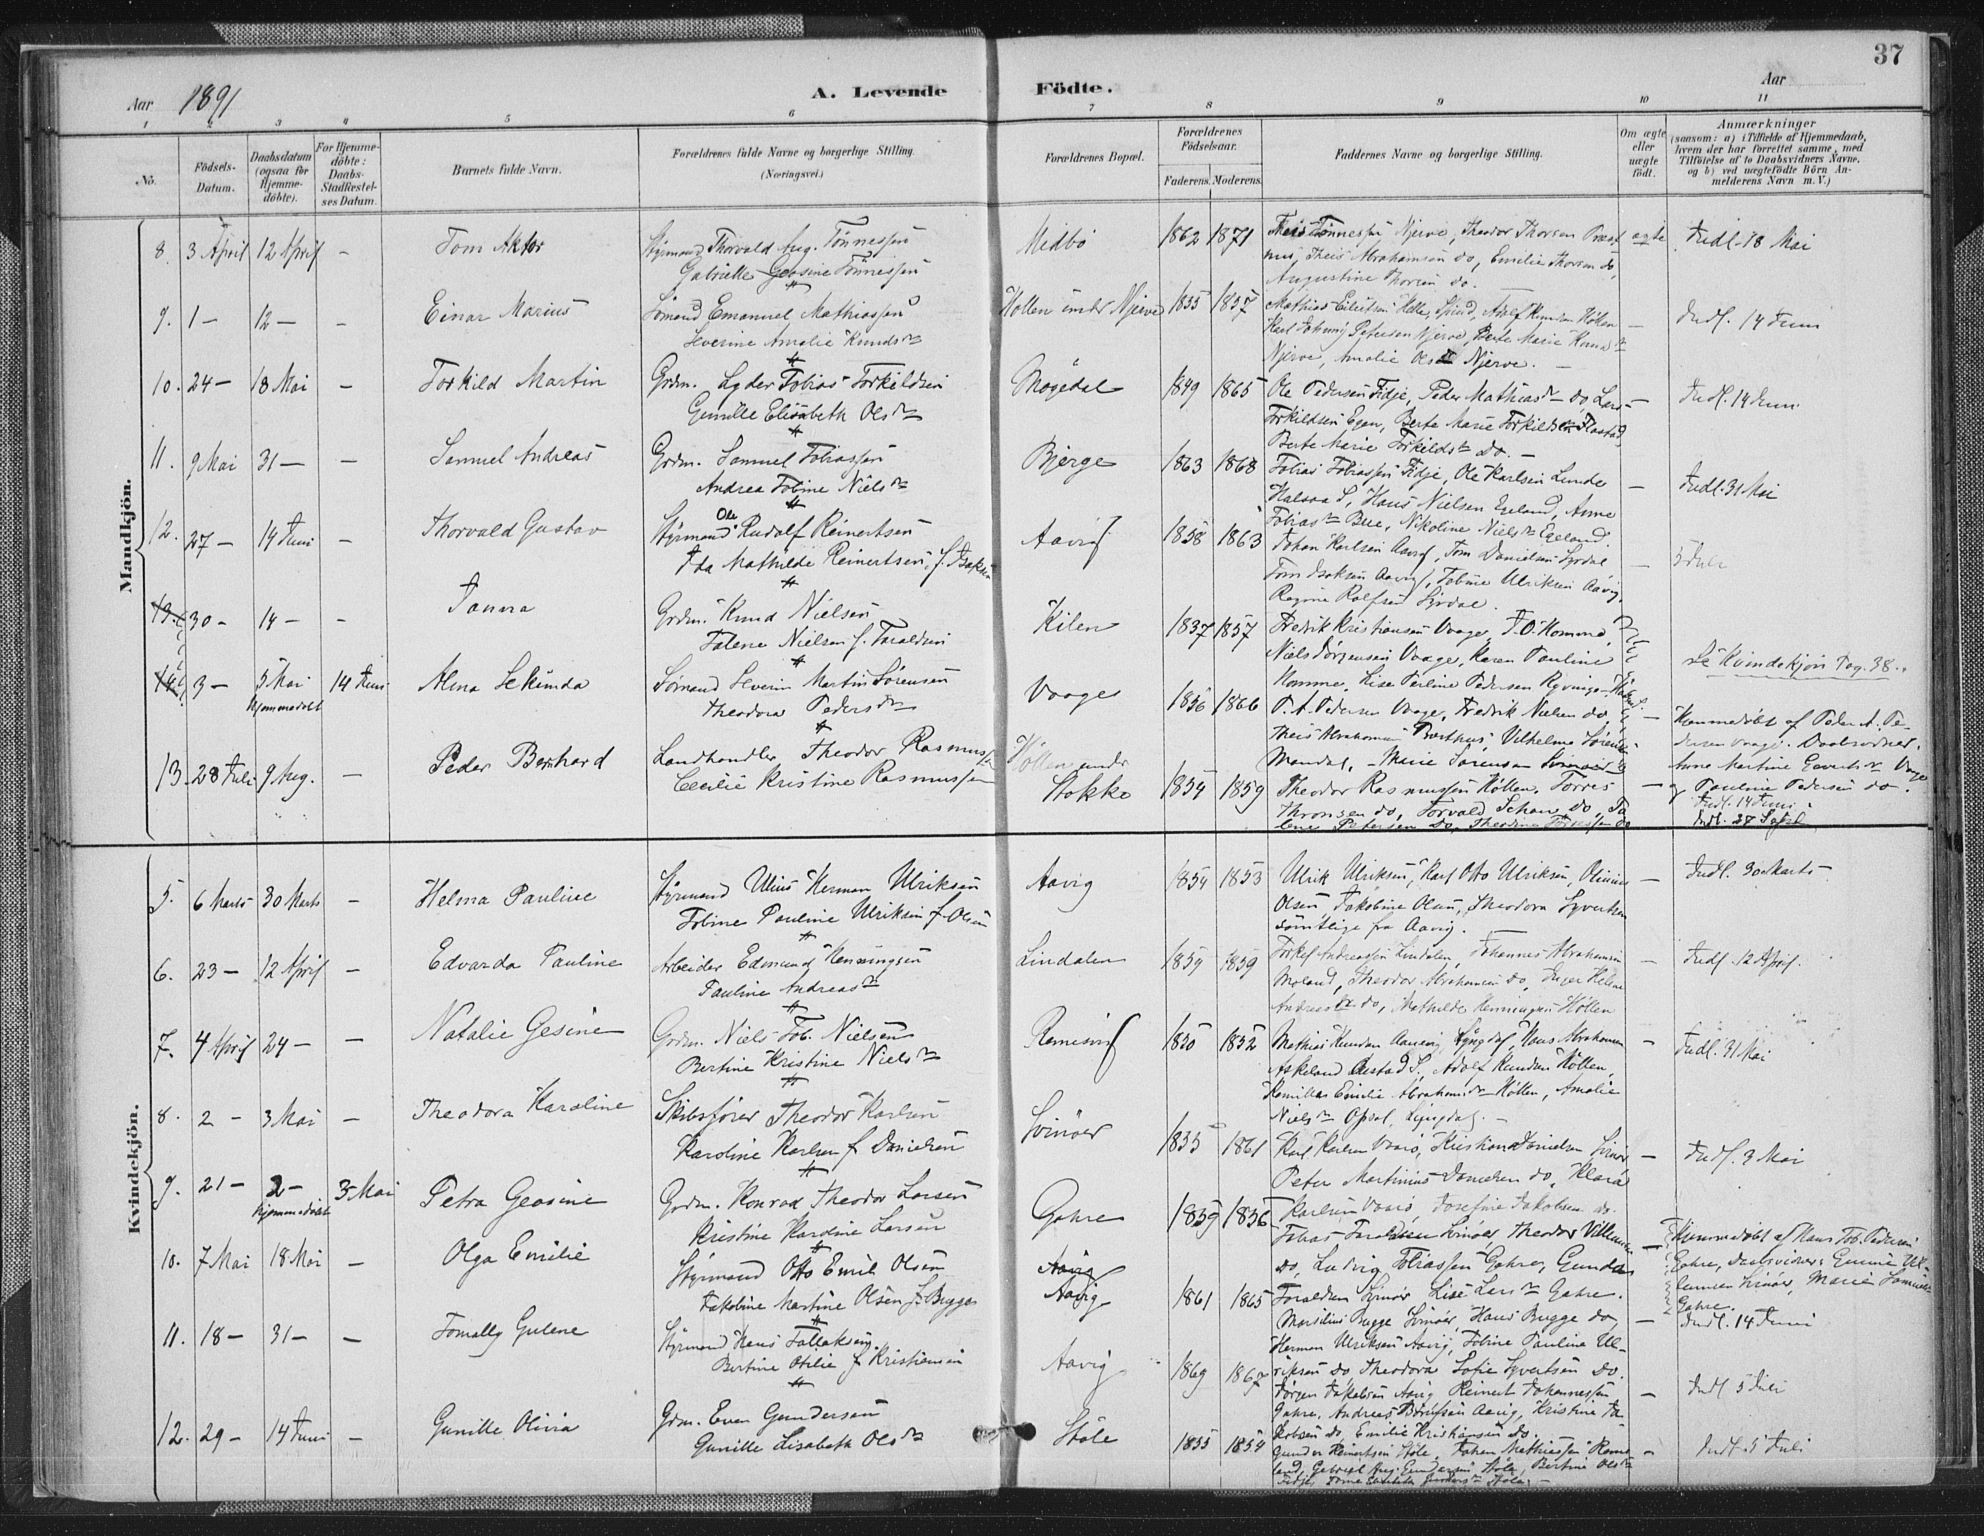 37
Aar 1891
A. Levende Födte.
Aar
1 2 3 4 5 6 7 8 9 10 11
No.
Födsels-Datum.
Daabsdatum (ogsaa for Hjemme-döbte).
For Hjemme-döbte: Daabs-Stadfæstel-ses Datum.
Barnets fulde Navn.
Forældrenes fulde Navne og borgerlige Stilling. (Næringsvei.)
Forældrenes Bopæl.
Forældrenes Födselsaar.
Faderens. Moderens.
Faddernes Navne og borgerlige Stilling.
Om ægte eller uægte födt.
Anmærkninger
(saasom: a) i Tilfælde af Hjemmedaab, hvem der har forrettet samme, med Tilföielse af to Daabsvidners Navne, og b) ved uægtefödte Börn An-melderens Navn m. V.)
Mandkjön.
8. 3 April 12 April - Tom Aktor
Styrmand Thorvald Aug. Tönnessen
Gabrielle Geosine Tönnessen
Midbö 1862 1871
Theis Tönnessen Njerve, Theodor Thorsen
Theis Abrahamsen do, Emilie Thorsen do,
Augustine Thorsen do.
ægte
Indl. 18 Mai
9. 1 - 12 - - Einar Marius
Sömand Emanuel Mathiassen
Severine Amalie Knudsdr
Höllen under Njerve 1855 1857
Karl Johnny Petersen Njerve, Berte Marie
Njerve, Amalie Njerve. -
Indl. 14 Juni
10. 24 - 18 Mai - Torkild Martin
Grdm. Lyder Tobias Torkildsen
Gunille Elisabeth Olsdr
Mögedal 1849 1865
Ole Pedersen Fidje, Peder Mathiasdr do, Lars
Torkildsen Egen, Berte Marie
Berte Marie Torkildsdr do. -
Indl. 14 Juni
11. 9 Mai 31 - - Samuel Andreas
Grdm. Samuel Tobiassen
Andrea Tobine Nielsdr
Bjerge 1863 1868
Tobias Tobiassen Fidje, Ole Karlsen Lunde
Halsaa S, Hans Nielsen Egeland, Anne
Tobiasdr Bue, Nikoline Nielsdr Egeland.
Indl. 31 Mai
12. 27 - 14 Juni - Thorvald Gustav
Styrmand Ole Rudolf Reinertsen
Ida Mathilde Reinertsen, f. Isaksen
Aavig 1858 1863
Johan Karlsen Aavig, Tom Danielsen Syrdal
Tom Isaksen Aavig, Tobine Ulriksen Aavig,
Regine Rolfsen Syrdal.
5 Juli
13. 30 - 14 - - Janna
Grdm. Knud Nielsen
Talene Nielsen f. Taraldsen
Kilen 1837 1857
Fredrik Kristiansen Vaage, T. O. Homme,
Niels Jörgensen Vaage, Karen Pauline
Homme, Lise Perline Pedersen Ryvingen
Se Kvindekjön Pag. 38.
14. 3 - 5 Mai Hjemmedöbt 14 Juni Alma Sekunda
Sömand Severin Martin Sörensen
Theodora Pedersdr
Vaage 1856 1866
P. A. Pedersen Vaage, Fredrik Nielsen do,
Theis Abrahamsen Præsthus, Vilhelme Sörensen
Mandal, Marie Sörensen
Hjemmedöbt af Peder A. Pe-
dersen Vaage. Daabsvidner:
Anne Martine Vaage
og Pauline Pedersen do.
Indl. 14 Juni
13. 28 Juli 9 Aug. - Peder Bernhard
Landhandler Theodor Rasmussen
Cecilie Kristine Rasmussen
Höllen under Stokke 1854 1859
Theodor Rasmussen Höllen, Torres
Thronsen do, Torvald Schau do, Ta
lene Petersen do, Theodine Torressen do
Indl. 27 Septbr
Kvindekjön.
5. 6 Marts 30 Marts - Helma Pauline
Styrmand Ulius Herman Ulriksen
Tobine Pauline Ulriksen f. Olsen
Aavig 1854 1853
Ulrik Ulriksen, Karl Otto Ulriksen, Olinius
Olsen, Jakobine Olsen, Theodora Syvertsen
samtlige fra Aavig.
Indl. 30 Marts
6. 23 - 12 April - Edvarda Pauline
Arbeider Edmund Henningsen
Pauline Andreasdr
Lindalen 1859 1859
Torkel Andreassen Lindalen, Johannes Abrahamsen
Moland, Theodor Abrahamsen do, Inger Helene
Andreasdr do, Mathilde Henningsen Höllen
Indl. 12 April.
7. 4 April 24 - - Natalie Gesine
Grdm. Niels Tob. Nielsen
Bertine Kristine Nielsdr
1850 1852
Mathias Knudsen, Lyngdal, Hans Abrahamsen
Askeland, Adolf Knudsen Höllen,
Emilie Abrahamsdr Höllen, Amalie
Nielsdr Opsal, Lyngdal. -
Indl. 31 Mai
8. 2 - 3 Mai - Theodora Karoline
Skibsförer Theodor Karlsen
Karoline Karlsen f. Danielsen
Svinöer 1855 1861
Karl Karlsen Vaarö, Kristian Danielsen Svinör
Peter Martinius Danielsen do, Klara
Karlsen Vaarö, Josefine Jakobsen do.
Indl. 3 Mai
9. 21 - 2 - Hjemmedöbt 3 Mai Petra Geosine
Grdm. Konrad Theodor Larsen
Kristine Karoline Larsen
Gahre 1859 1856
Tobias Taraldsen Svinöer, Theodor Villumsen
do, Ludvig Tobiassen Gahre, Gunda
Taraldsen Svinöer, Lise Larsdr Gahre.
Hjemmedöbt af Hans Tob. Pedersen
Gahre, Daabsvidner: Gunine Vil-
lumsen Svinöer, Marie
Gahre.
10. 7 Mai 18 Mai - Olga Emilie
Styrmand Otto Emil Olsen
Jakobine Martine Olsen f. Bugge
Aavig
Aavig 1861 1865
Marsilius Bugge Svinöer, Hans Bugge do,
Herman Ulriksen Aavig, Tobine Pauline Ul-
riksen do, Theodora Sofie Syvertsen do.
Indl. 14 Juni
11. 18 - 31 - - Tomally Gulene
Styrmand Hans Tallaksen
Bertine Otilie f. Kristiansen
Aavig 1869 1867
Jörgen Jakobsen Aavig, Reinert Johannessen
Gahre, Andreas Aavig, Kristine Ja-
kobsen do, Emilie Kristiansen do.
Indl 5 Juli
12. 29 - 14 Juni - Gunille Olivia
Grdm. Even Gundersen
Gunille Lisabeth Olsdr
Stöle 1855 1854
Gunder Reinertsen Stöle, Johan Mathiassen Rome
land, Gabriel Aug. Gundersen Stöle, Bertine Olsdr
Fidje, Stöle. -
Indl. 5 Juli